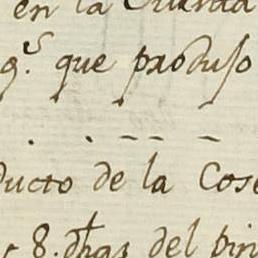 en la
q.s que produso
ducto de la Cose
8. dhas del pin